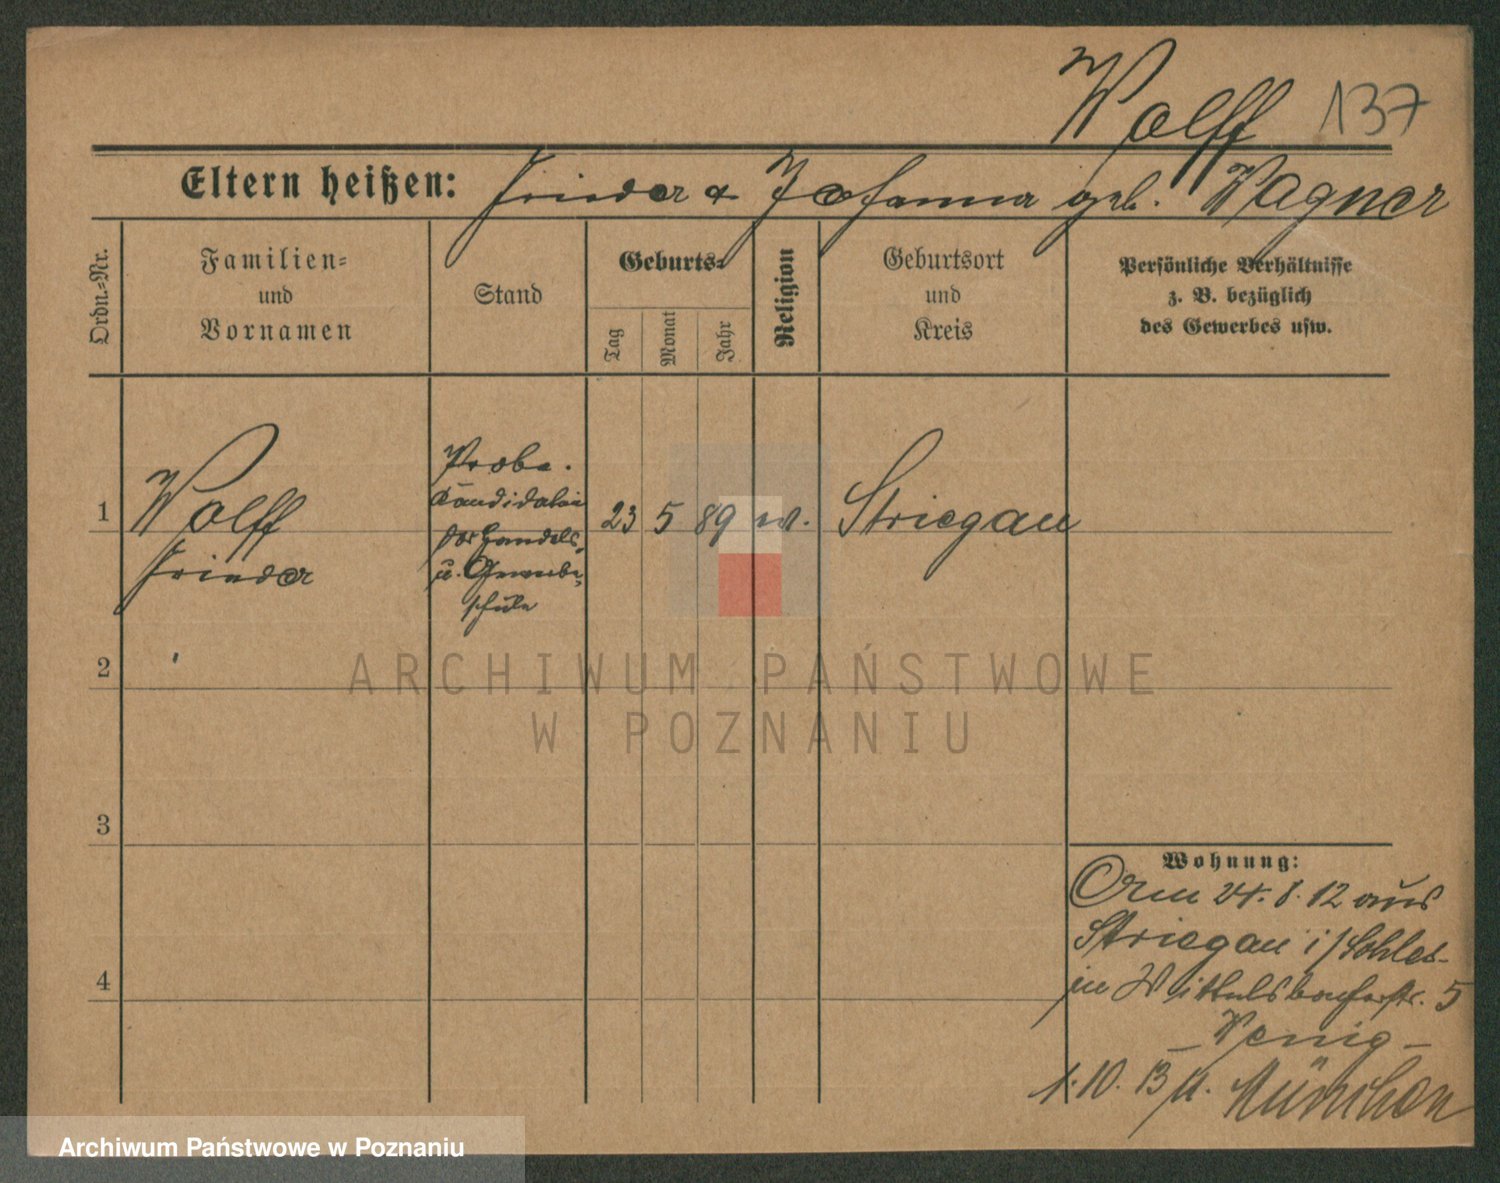 Wolff 137
Eltern heißen: Frieder & Johanna geb. Wagner
Ordn.=Nr.
Familien=
und
Vornamen
Stand
Geburts=
Tag
Monat
Jahr
Religion
Geburtsort
und
Kreis
Persönliche Verhältnisse
z. B. bezüglich
des Gewerbes usw.
1
Wolff
Frieder
Probe.
Kandidat
der Handels
u. Gewerbe=
schule
23 5 89
Striegau
2
3
4
Wohnung:
24. 8. 12 aus
Striegau i/Schles.
in Wittelsbacherstr. 5
1. 10. 13 n. München
ARCHIWUM PAŃSTWOWE
W POZNANIU
Archiwum Państwowe w Poznaniu